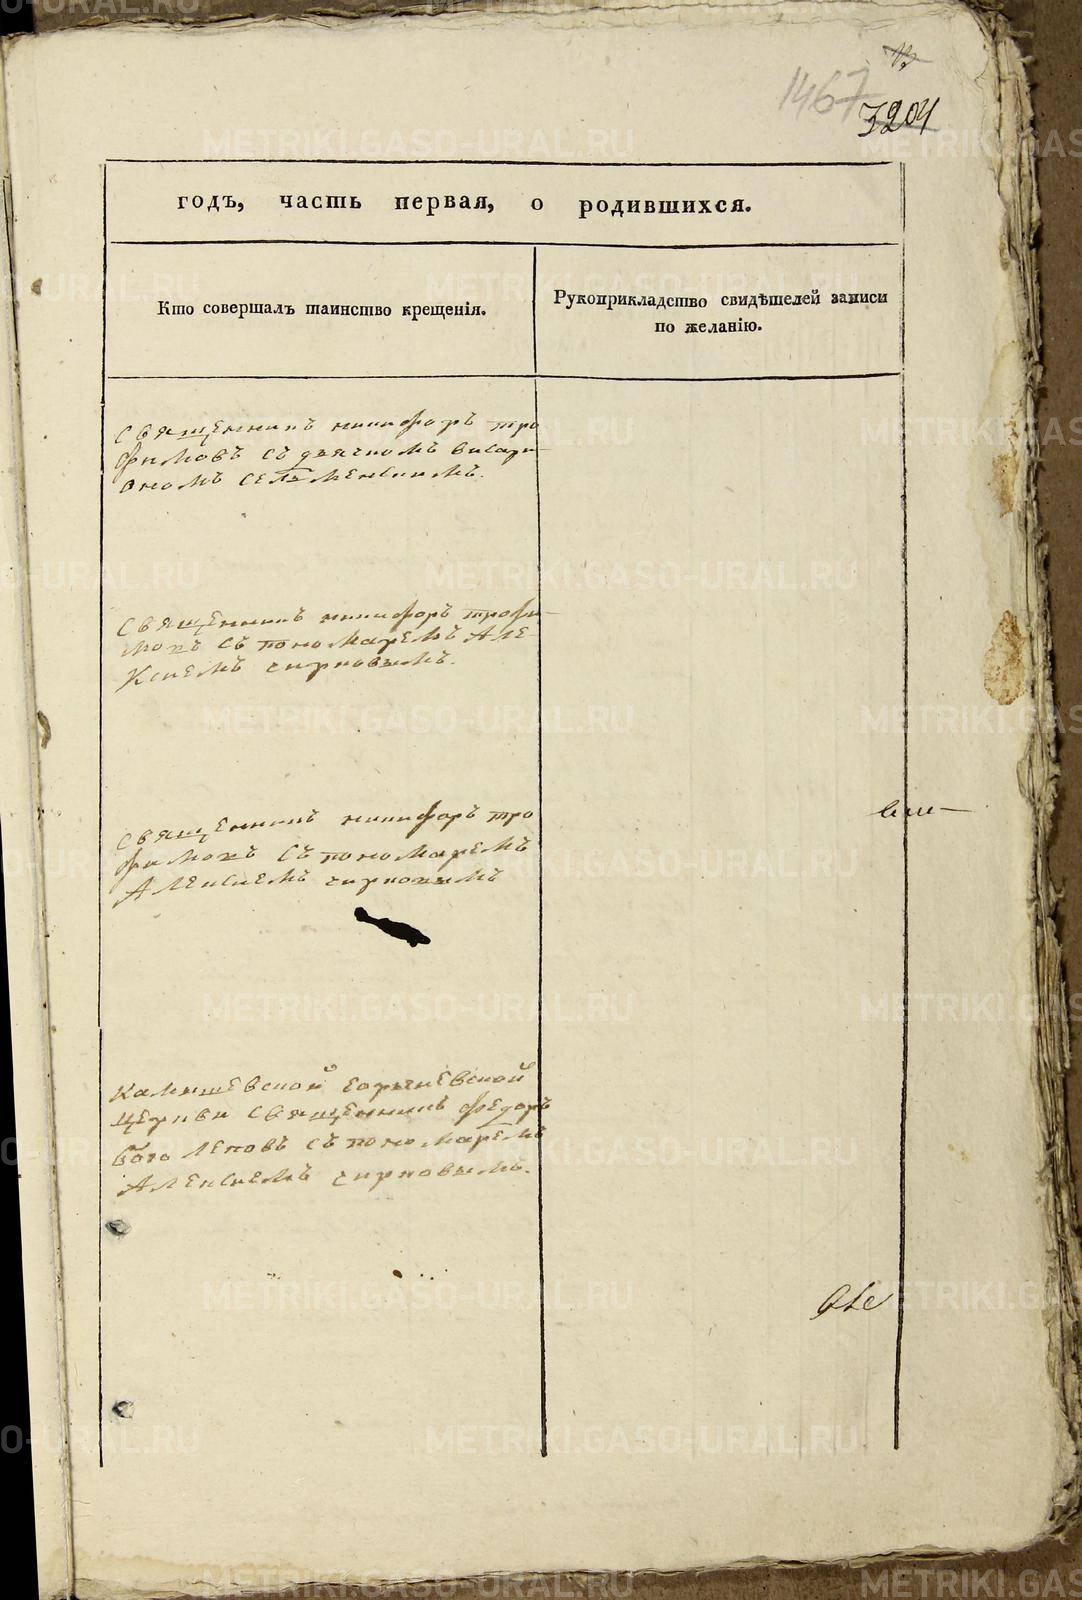 1467
3204
годъ, часть первая, о родившихся.
Кто совершалъ таинство крещенія.
Рукоприкладство свидѣтелей записи
по желанію.
священникъ никифоръ тро
фимовъ съ дьячкомъ висари
ономъ селеменскимъ.
священникъ никифоръ трофи
мовъ съ пономаремъ Але
ксиемъ смирновымъ.
священникъ никифоръ тро
фимовъ съ пономаремъ
Алексиемъ смирновымъ
камышевской георгиевской
церкви священникъ федоръ
боголеповъ съ пономаремъ
Алексиемъ смирновымъ.
METRIKI.GASO-URAL.RU